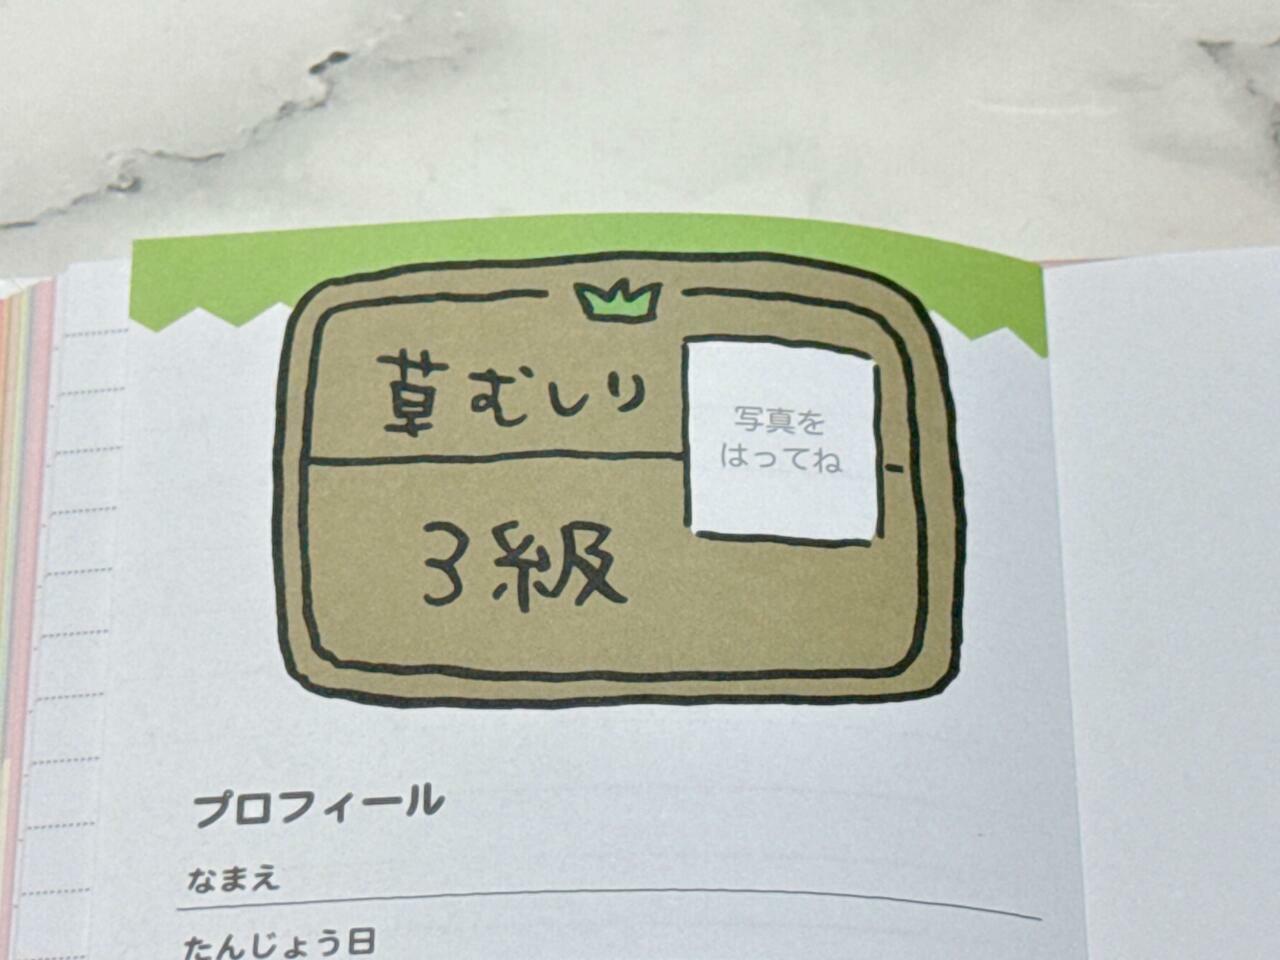 草むしり
写真を
はってね
3級
プロフィール
なまえ
たんじょう日